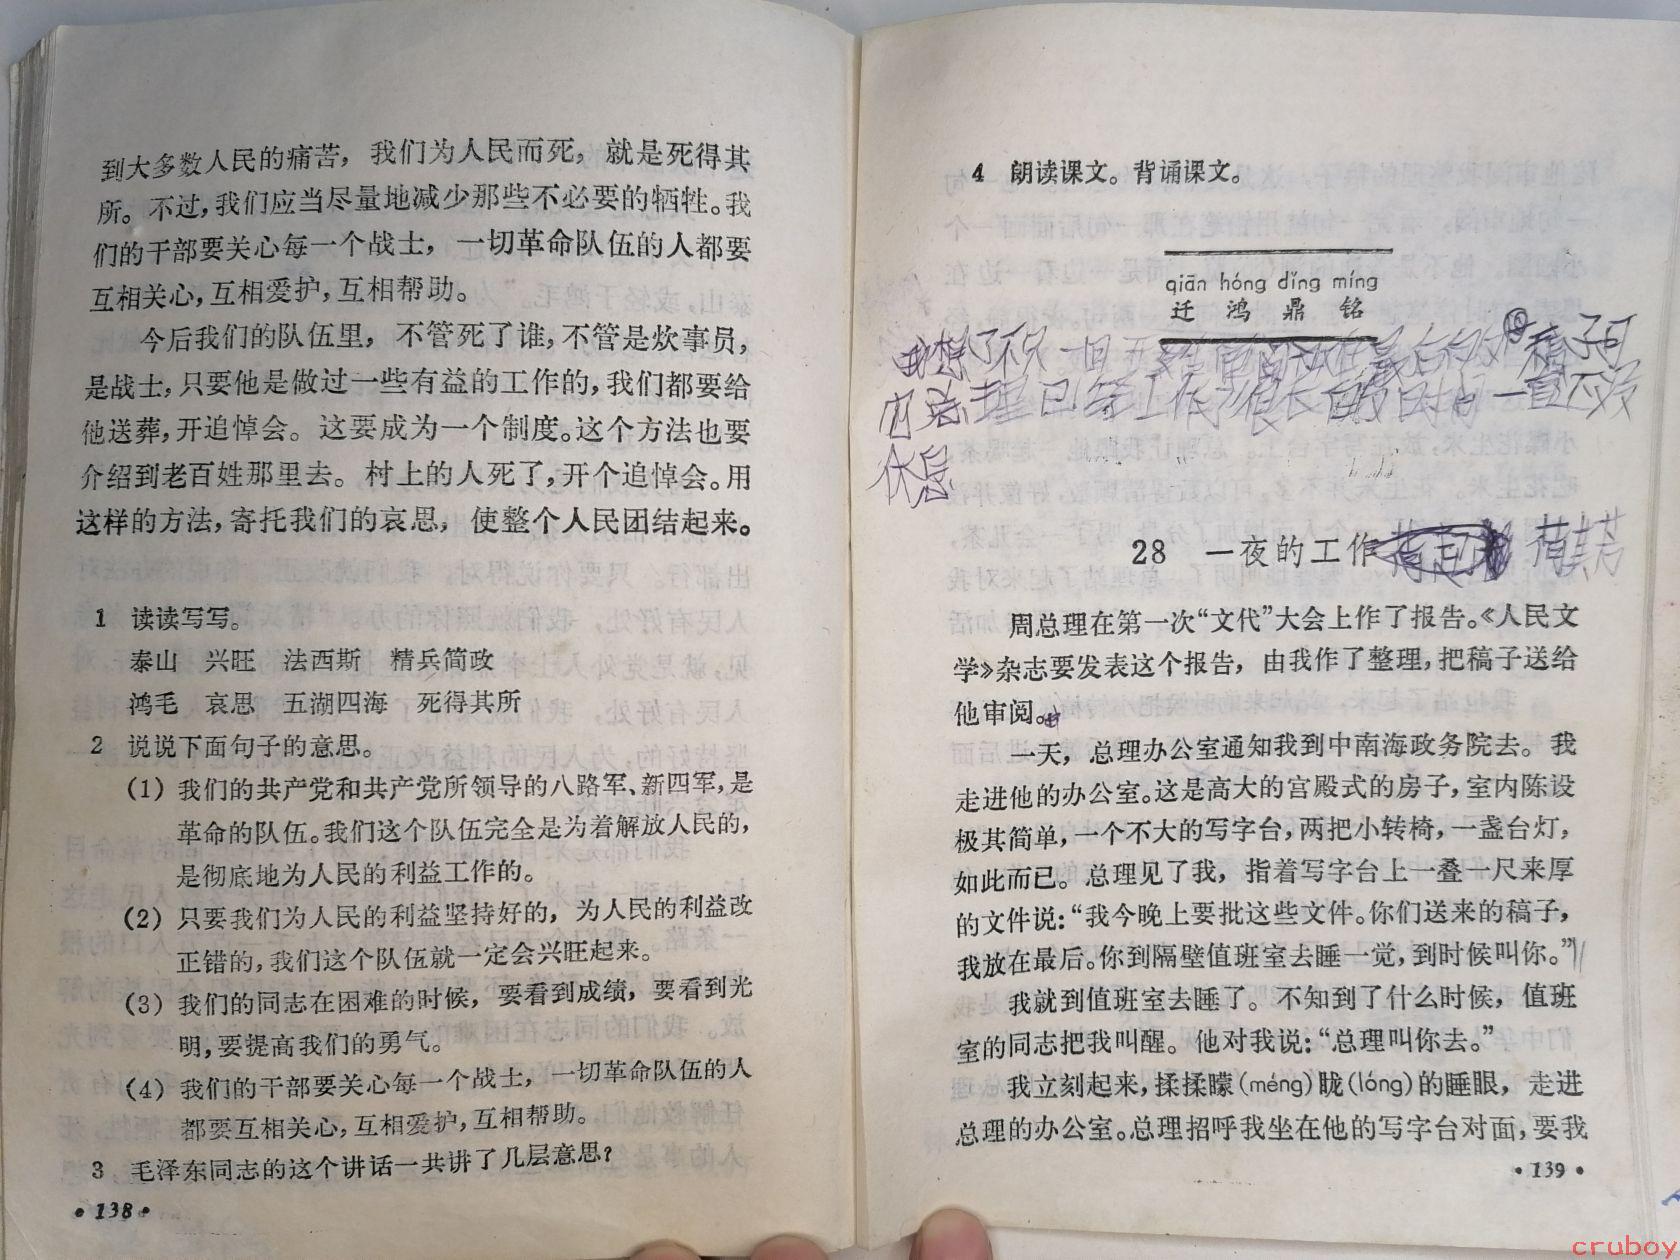 到大多数人民的痛苦，我们为人民而死，就是死得其
所。不过，我们应当尽量地减少那些不必要的牺牲。我
们的干部要关心每一个战士，一切革命队伍的人都要
互相关心，互相爱护，互相帮助。
今后我们的队伍里，不管死了谁，不管是炊事员，
是战士，只要他是做过一些有益的工作的，我们都要给
他送葬，开追悼会。这要成为一个制度。这个方法也要
介绍到老百姓那里去。村上的人死了，开个追悼会。用
这样的方法，寄托我们的哀思，使整个人民团结起来。
1 读读写写。
泰山 兴旺 法西斯 精兵简政
鸿毛 哀思 五湖四海 死得其所
2 说说下面句子的意思。
(1) 我们的共产党和共产党所领导的八路军、新四军，是
革命的队伍。我们这个队伍完全是为着解放人民的，
是彻底地为人民的利益工作的。
(2) 只要我们为人民的利益坚持好的，为人民的利益改
正错的，我们这个队伍就一定会兴旺起来。
(3) 我们的同志在困难的时候，要看到成绩，要看到光
明，要提高我们的勇气。
(4) 我们的干部要关心每一个战士，一切革命队伍的人
都要互相关心，互相爱护，互相帮助。
3 毛泽东同志的这个讲话一共讲了几层意思？
•138•
4 朗读课文。背诵课文。
qiān hóng dǐng míng
迁 鸿 鼎 铭
稿子可
总理已经工作了很长时间一直没
休息
28 一夜的工作
周总理在第一次“文代”大会上作了报告。《人民文
学》杂志要发表这个报告，由我作了整理，把稿子送给
他审阅。
一天，总理办公室通知我到中南海政务院去。我
走进他的办公室。这是高大的宫殿式的房子，室内陈设
极其简单，一个不大的写字台，两把小转椅，一盏台灯，
如此而已。总理见了我，指着写字台上一叠一尺来厚
的文件说：“我今晚上要批这些文件。你们送来的稿子，
我放在最后。你到隔壁值班室去睡一觉，到时候叫你。”
我就到值班室去睡了。不知到了什么时候，值班
室的同志把我叫醒。他对我说：“总理叫你去。”
我立刻起来，揉揉矇(méng)眬(lóng)的睡眼，走进
总理的办公室。总理招呼我坐在他的写字台对面，要我
•139•
cruboy